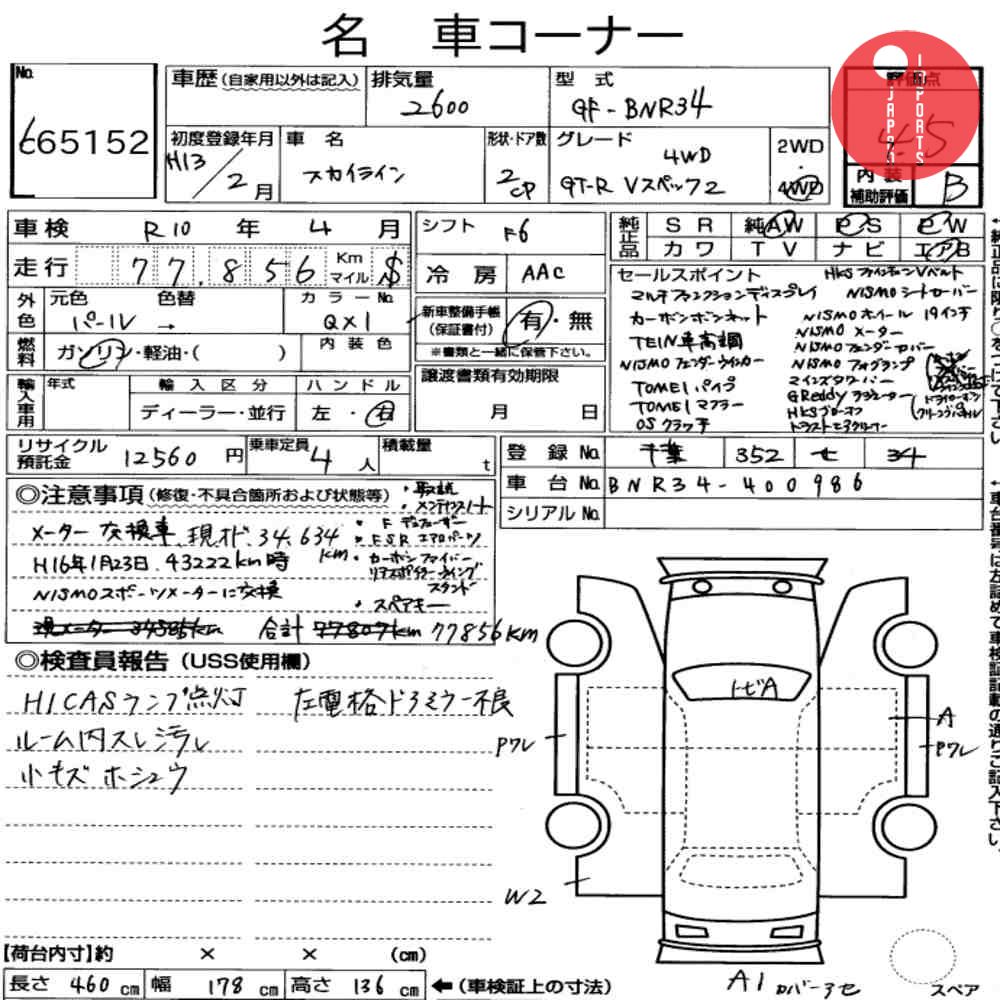 名 車コーナー
No.
665152
車歴 (自家用以外は記入)
排気量
2600
型 式
GF - BNR34
評価点
4.5
JAPAN IMPORTS
初度登録年月
H13/2月
車 名
スカイライン
形状・ドア数
2 CP
グレード
4WD
GT-R Vスペック2
2WD
・
4WD
内 装
補助評価
B
車検 R10 年 4 月
走行 77,856 Km マイル $
シフト F6
冷 房 AAC
純正品
S R 純AW P S P W
カワ T V ナビ エアB
外色
元色 色替
パール →
カラーNo.
QX1
燃料
ガソリン・軽油・( )
内 装 色
新車整備手帳
(保証書付)
有・無
※書類と一緒に保管下さい。
譲渡書類有効期限
月 日
輸入車用
年式
輸 入 区 分
ディーラー・並行
ハ ン ド ル
左 ・ 右
セールスポイント
マルチファンクションディスプレイ
カーボンボンネット
TEIN車高調
NISMOフェンダーウインカー
TOMEIパイプ
TOMEIマフラー
OSクラッチ
HKSファインチューンVベルト
NISMOシートカバー
NISMOホイール 19インチ
NISMO メーター
NISMOフェンダーカバー
NISMOフォグランプ
マインズタワーバー
GReddyラジエーター
HKSブローオフ
トラストエアクリーナー
リサイクル
預託金
12560 円
乗車定員
4 人
積載量
t
登 録 No. 千葉 352 七 34
車 台 No. BNR34-400986
シリアルNo.
◎注意事項 (修復・不具合箇所および状態等)
メーター交換車 現オド 34,634 km
H16年1月23日. 43222km時
NISMOスポーツメーターに交換
合計 77807km 77856KM
・取説
・メンテナンスノート
・F ディフューザー
・ESR エアロパーツ
・カーボンファイバー
リアスポイラーウイング
スタンド
・スペアキー
◎検査員報告 (USS使用欄)
HICASランプ点灯 左電格ドアミラー不良
ルーム内スレ汚レ
小キズ ホシュウ
トビA
A
Pワレ
Pワレ
W2
A1
カバーアセ
スペア
【荷台内寸】約 × × (cm)
長さ 460 cm 幅 178 cm 高さ 136 cm ←(車検証上の寸法)
←純正品に限り○をつけて下さい
←車台番号は左詰めで車検証記載の通りご記入下さい。